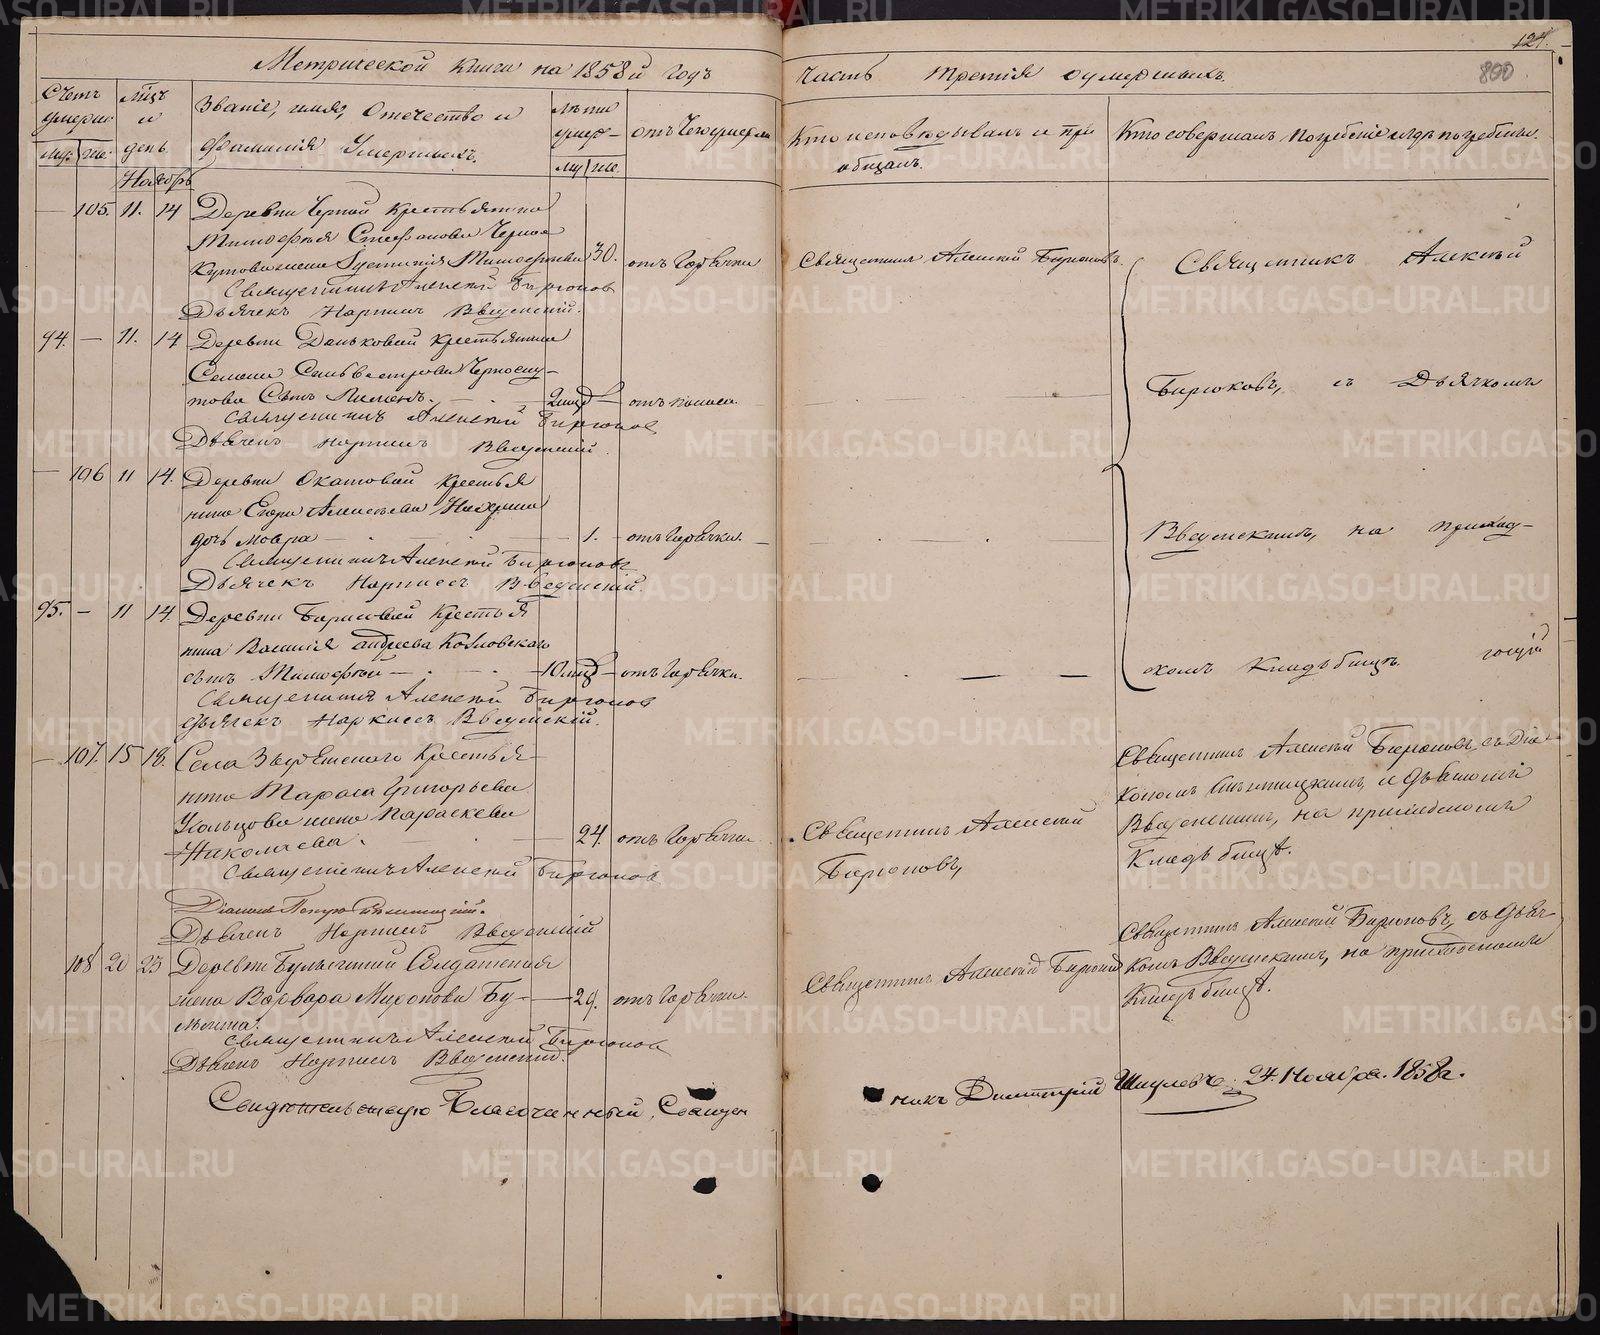 Метрической книги на 1858й годъ
Часть третія о умершихъ.
124.
800
Счетъ умерш:
Муж: Же:
Мѣсяцъ и день
Званіе, имя, Отчество и
Фамилія Умершихъ.
Лѣта умер-
му же.
отъ Чего умерли
Кто исповѣдывалъ и прі
общалъ.
Кто совершалъ погребеніе и гдѣ погребены.
Ноябрь
— 105. 11. 14 Деревни Черной Крестьянина
Тимофея Стефанова
жена Тимофеева 30. отъ Горячки
Священникъ Алексѣй Бирюковъ.
Священникъ Алексѣй Бирюковъ
Дьячекъ Наркисъ Введенскій.
94. — 11. 14 Деревни Даньковой Крестьянина
Семена Сильвестрова Черноску-
това Сынъ — отъ поноса.
Священникъ Алексѣй Бирюковъ
Дьячекъ Наркисъ Введенскій.
— 106 11 14. Деревни Окатовой Крестья
нина Егора Алексѣева
дочь Мавра — 1. — отъ Горячки. —
Священникъ Алексѣй Бирюковъ
Дьячекъ Наркисъ Введенскій.
95. — 11 14. Деревни Борисовой Крестья
нина Василія Андреева Козловскаго
сынъ Тимофей — 10 — отъ Горячки.
Священникъ Алексѣй Бирюковъ
Дьячекъ Наркисъ Введенскій.
Священникъ Алексѣй
Бирюковъ, съ Дьячкомъ
Введенскимъ, на приход-
скомъ Кладбищѣ.
— 107. 15 18. Села Зырянского Крестья
нина Тараса Григорьева
Кольцова жена Параскева
Николаева. — 24. отъ Горячки.
Священникъ Алексѣй
Бирюковъ,
Священникъ Алексѣй Бирюковъ, съ Діа
кономъ и Дьячкомъ
Введенскимъ, на приходскомъ
Кладбищѣ.
Священникъ Алексѣй Бирюковъ
Діаконъ Петръ
Дьячекъ Наркисъ Введенскій
108 20 23 Деревни Булыгиной Солдатская
жена Варвара Миронова Бу- — 29. отъ Горячки.
лыгина.
Священникъ Алексѣй Бирюковъ
Священникъ Алексѣй Бирюковъ, съ Дьяч-
комъ Введенскимъ, на приходскомъ
Кладбищѣ.
Священникъ Алексѣй Бирюковъ
Дьячекъ Наркисъ Введенскій.
Свидѣтельствую Благочинный, Священ
никъ Димитрій 24. Ноября. 1858г.
METRIKI.GASO-URAL.RU